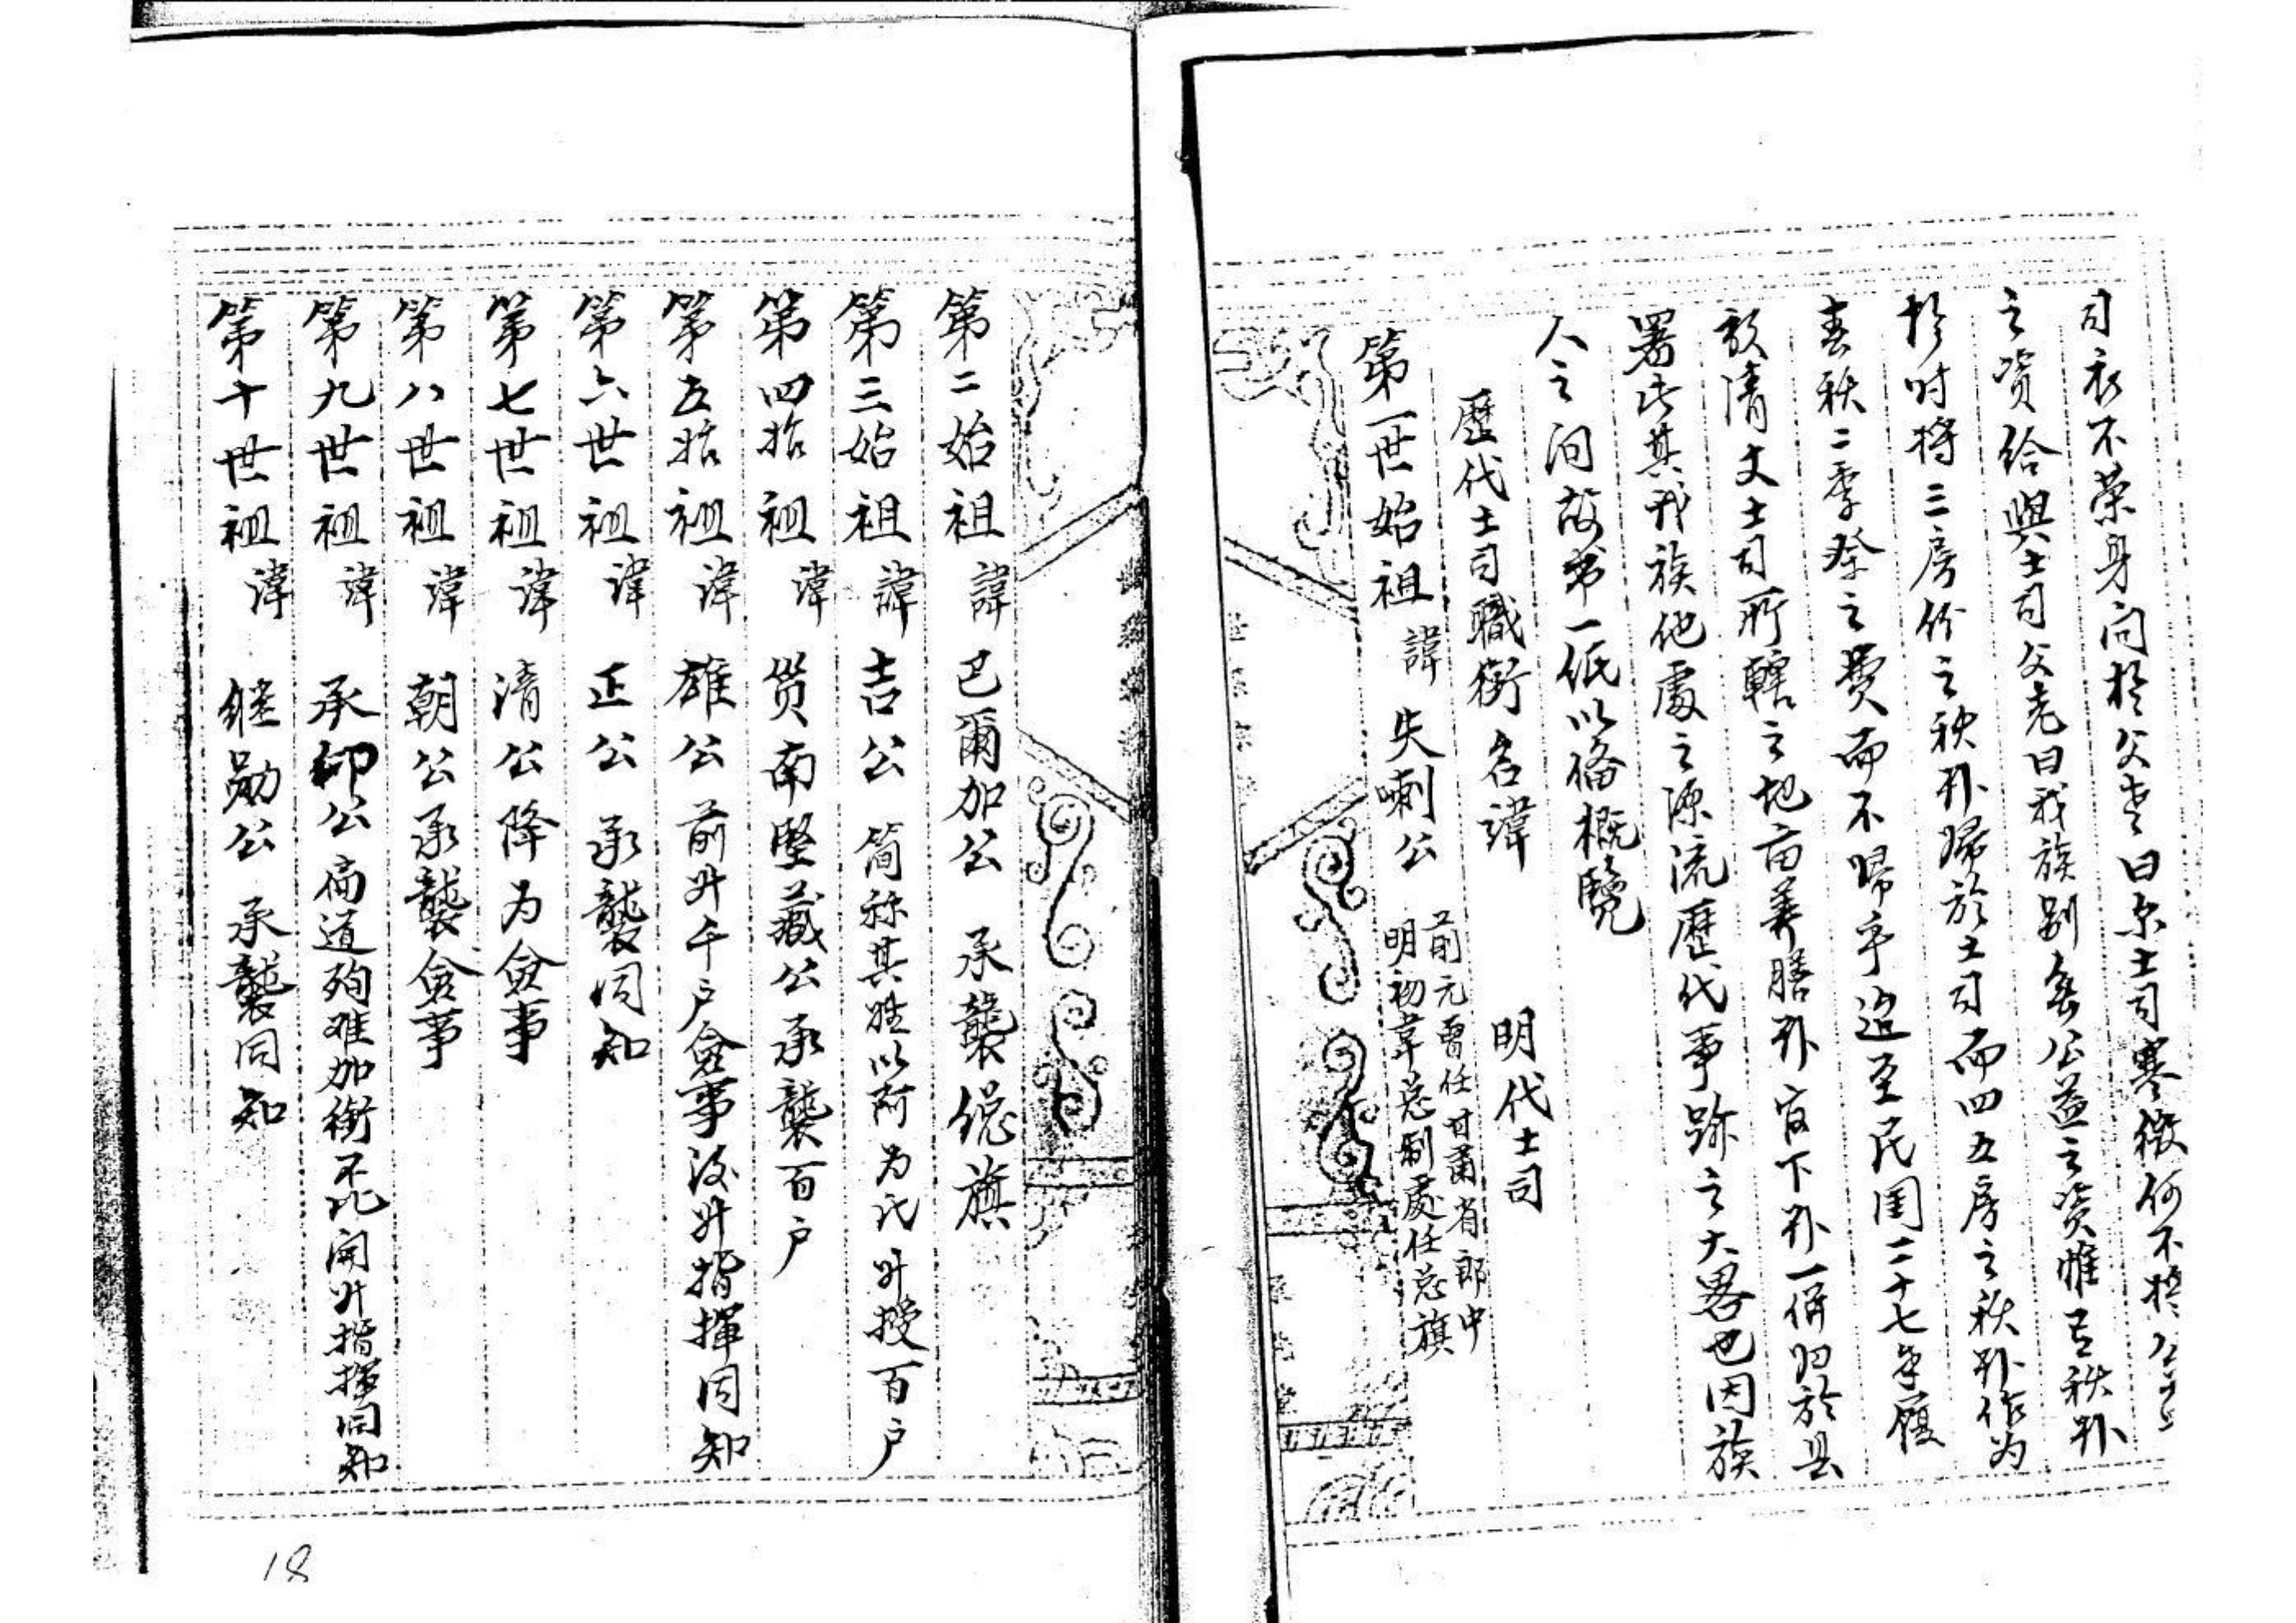 司衣不荣身问於父老曰尔土司寒微何不接公
之资给與土司父老曰我族别無公益之资惟有秋卦
於时将三房份之秋卦归於土司而四五房之秋卦作为
春秋二季祭之费而不归乎迨至民国二十七年履
敌清丈土司所辖之地亩养膳卦官下卦一併归於县
署此其我族他处之源流歷代事跡之大畧也因族
人之问故弟一纸以俻概覽
歷代土司職銜名諱 明代土司
第一世始祖諱 失喇公 前元曾任甘肅省郎中
明初韋总制處任总旗
第二始祖諱 巴爾加公 承襲總旗
第三始祖諱 吉公 简称其姓以所为氏升授百户
第四始祖諱 贸南堅藏公承襲百户
第五始祖諱 雄公前升千户僉事後升指揮同知
第六世祖諱 正公承襲同知
第七世祖諱 清公降为僉事
第八世祖諱 朝公承襲僉事
第九世祖諱 承印公 南道殉难加衔 開升指揮同知
第十世祖諱 继勋公 承襲同知
18